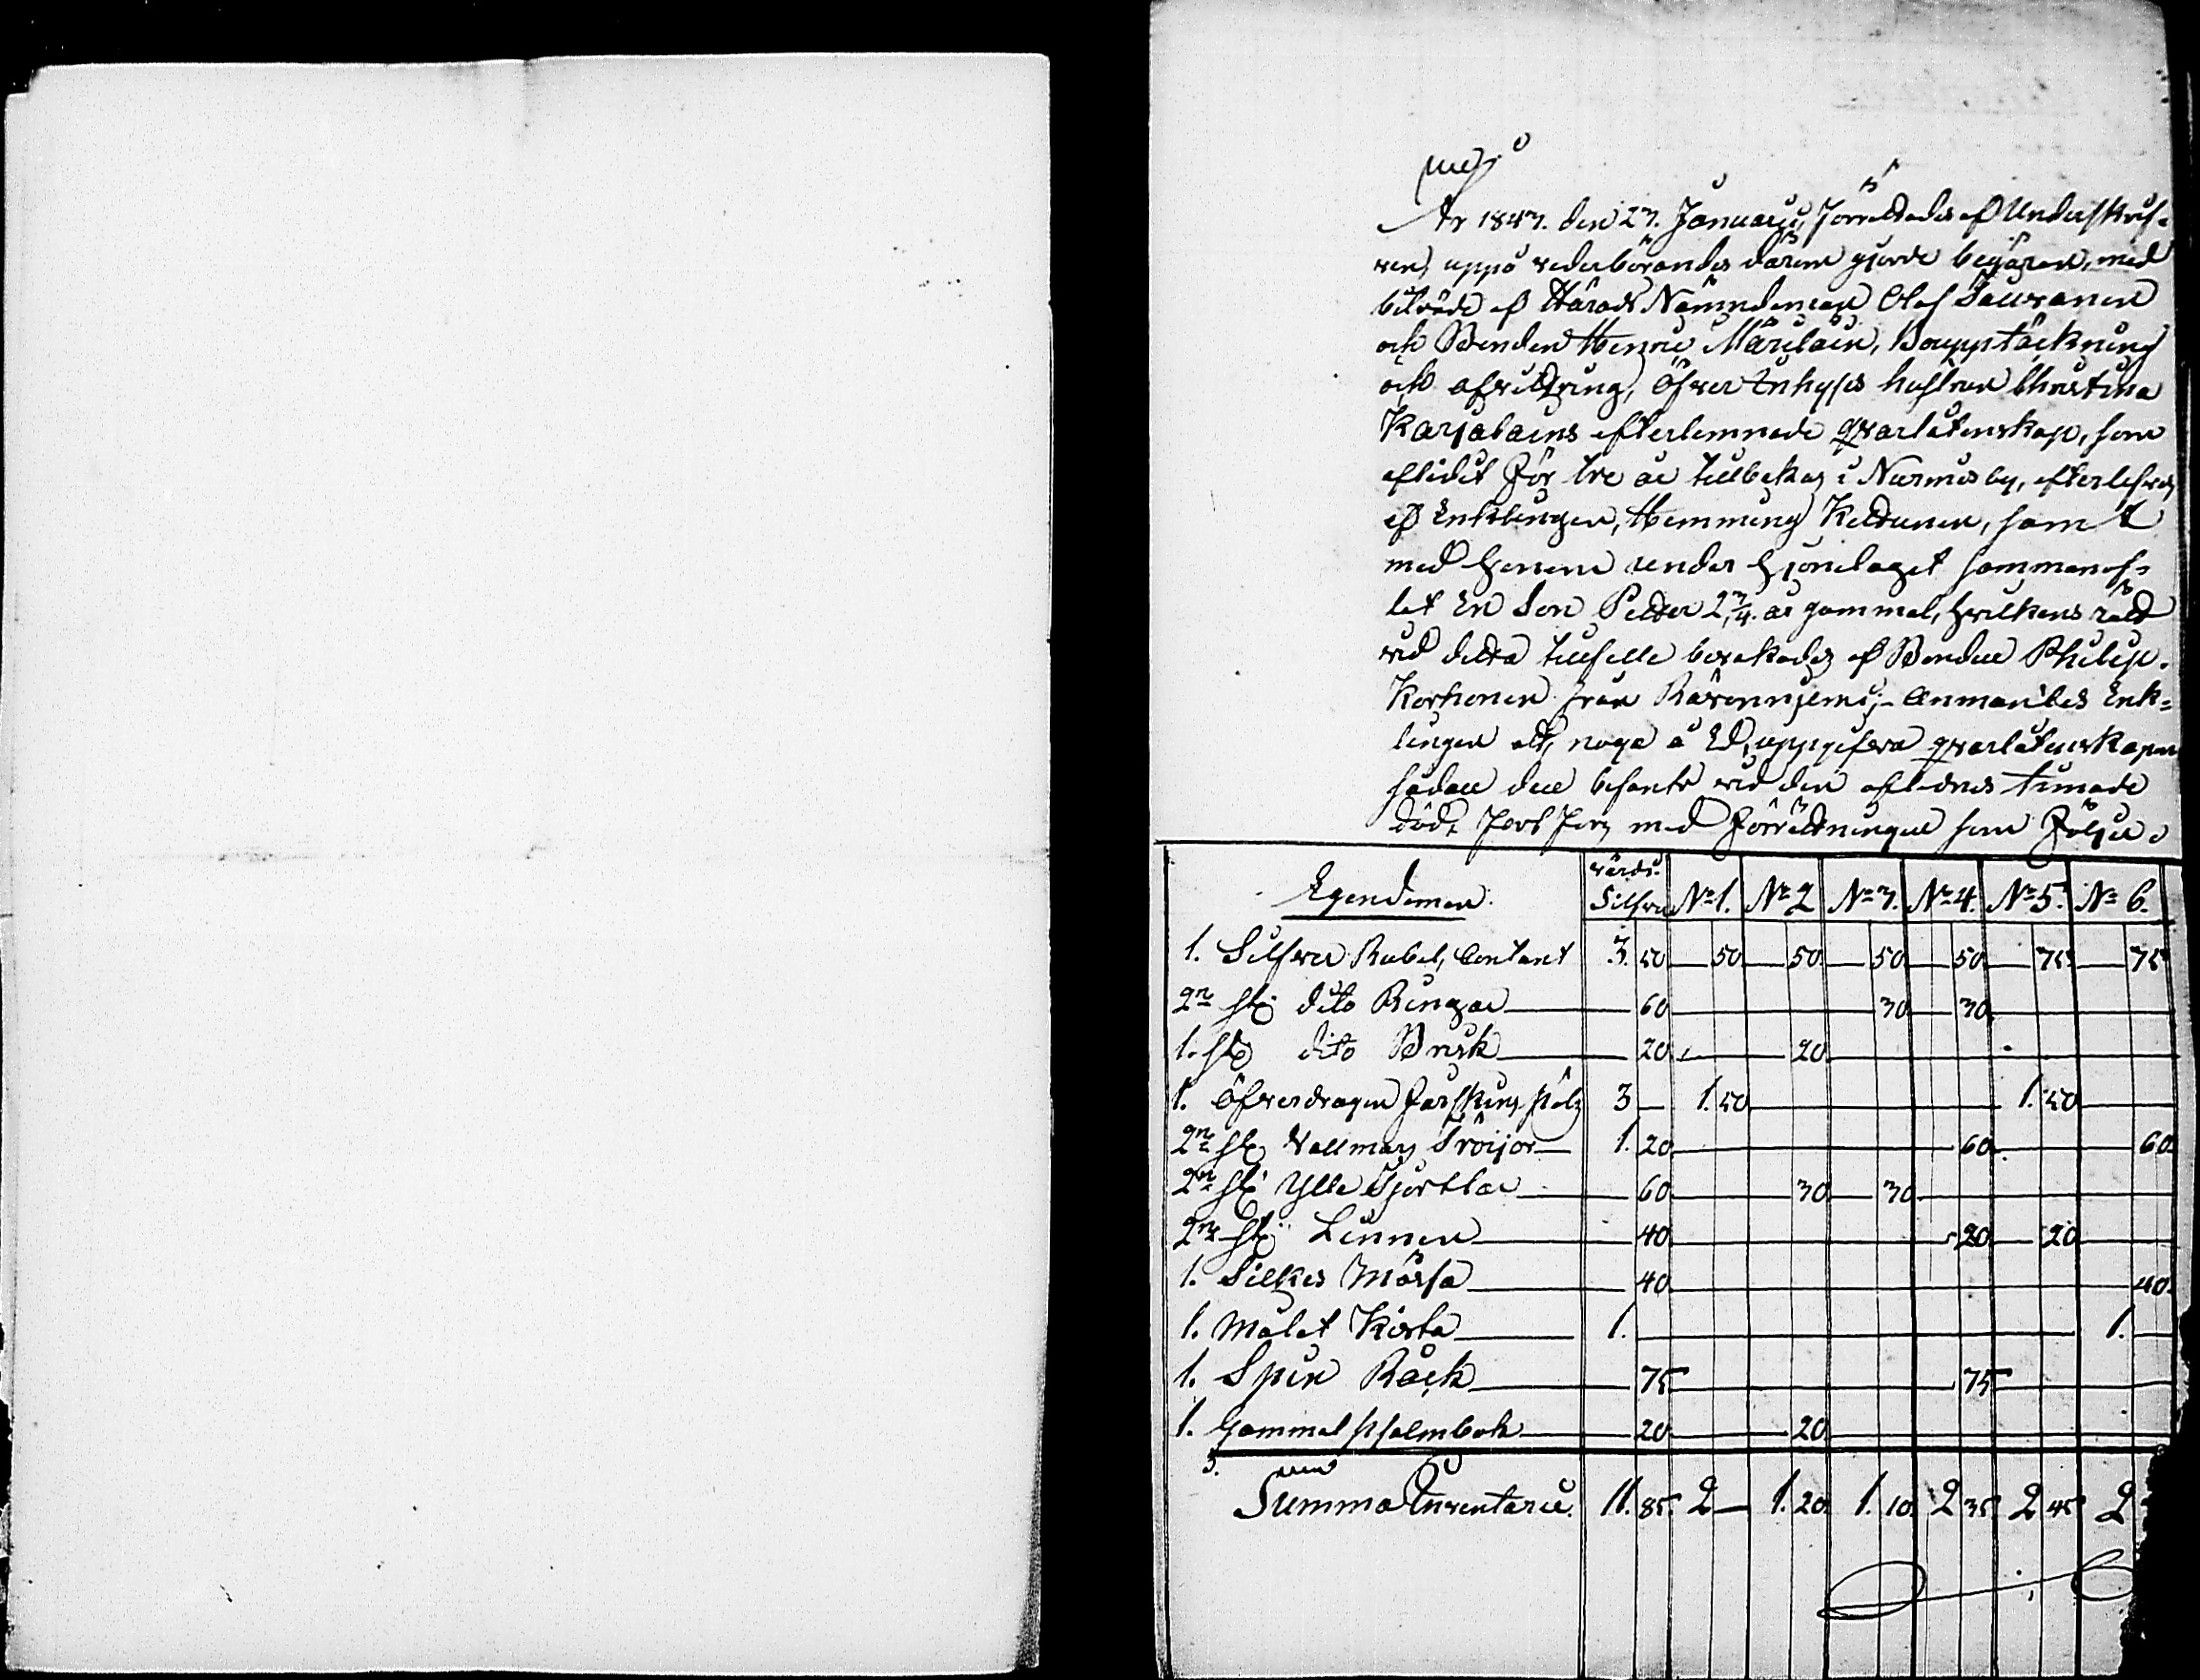 År 1843. den 23. Januarii, Förrettades af Underskref-
ven, uppå vederbörandes därom gjorde begäran, med
biträde af Härads Nämndeman Olof Sauranen
och Bonden Henric Märiläin, Bouppteckning
och afvittring, öfver Inhyses hustrun Christina
Karjalains efterlemnade qvarlåtenskap, som
aflidit för tre år tillbakas i Nurmis by, efterlefves
af Enklingen, Hemming Kettunen, som
med henne under hjonelaget sammanaf-
lat En Son Petter 2 3/4. år gammal, hvilkens rätt
vid detta tillfelle bevakades af Bonden Philip
Korhonen från Anmantes Enk-
lingen att, noga å Ed, uppgifva qvarlåtenskapen
sådan den befants vid den aflednes timade
död, med Förrettningen som Följer
Egendomen.
värde. Silfver N:o 1. N:o 2 N:o 3. N:o 4. N:o 5. N:o 6.
1. Silfver Rubel, Contant 3. 50 50 50 50 50 75 75
2ne st. dito Ringar 60 30 30
1. st. dito Brisk 20 20
1. Öfverdragen Fårskins päls 3 1. 50 1. 50
2ne st. Vallmars Tröijor 1. 20 60 60
2ne st. Ylle Kjortlar 60 30 30
2ne st. Linnen 40 20 20
1. Silkes Mössa 40 40
1. Målat Kista 1. 1.
1. Spin Råck 75 75
1. Gammal psalmbok 20 20
Summa Inventarii. 11. 85. 2 1. 20. 1. 10. 2 35. 2 45 2